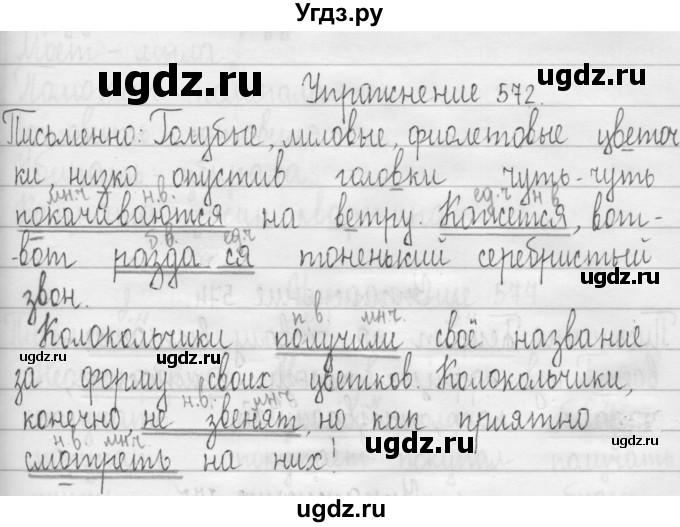 Угдз.ру
ugdz.ru ugdz.ru
Упражнение 572.
Письменно: Голубые, лиловые, фиолетовые цветоч
ки, низко опустив головки чуть-чуть
мн.ч н.в. ед.ч н в
покачиваются на ветру. Кажется, вот-
б.в. ед.ч
-вот разда ся тоненький серебристый
ugdz.ru ugdz.ru
звон.
п.в. мн.ч.
Колокольчики получили своё название
ugdz.ru ugdz.ru
за форму своих цветков. Колокольчики,
ugdz.ru
н.в. мн.ч.
конечно не звенят, но как приятно
ugdz.ru ugdz.ru
н.в. мн.ч.
смотреть на них!
ugdz.ru